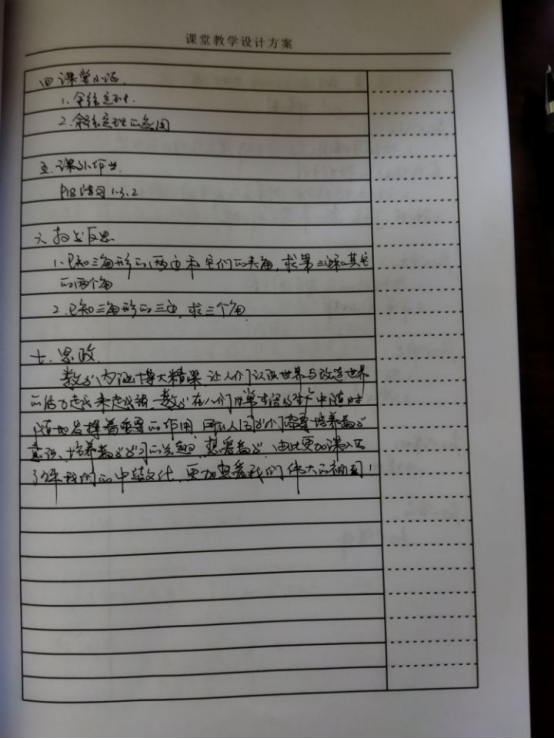 课堂教学设计方案
四 课堂小结
1. 余弦定理.
2. 余弦定理的应用
五. 课外作业
P18 练习 1.3.2
六 教学反思
1. 已知三角形的两边和它们的夹角, 求第三边和其它
的两个角
2. 已知三角形的三边, 求三个角
七. 思政
数学内涵博大精深 让人们认识世界与改造世界
的能力越来越强, 数学在人们日常生活
随地发挥着重要的作用 所以人们 需要培养数学
意识, 培养数学学习的兴趣, 热爱数学, 由此更加深入
了解我们的中华文化, 更加热爱我们伟大的祖国!